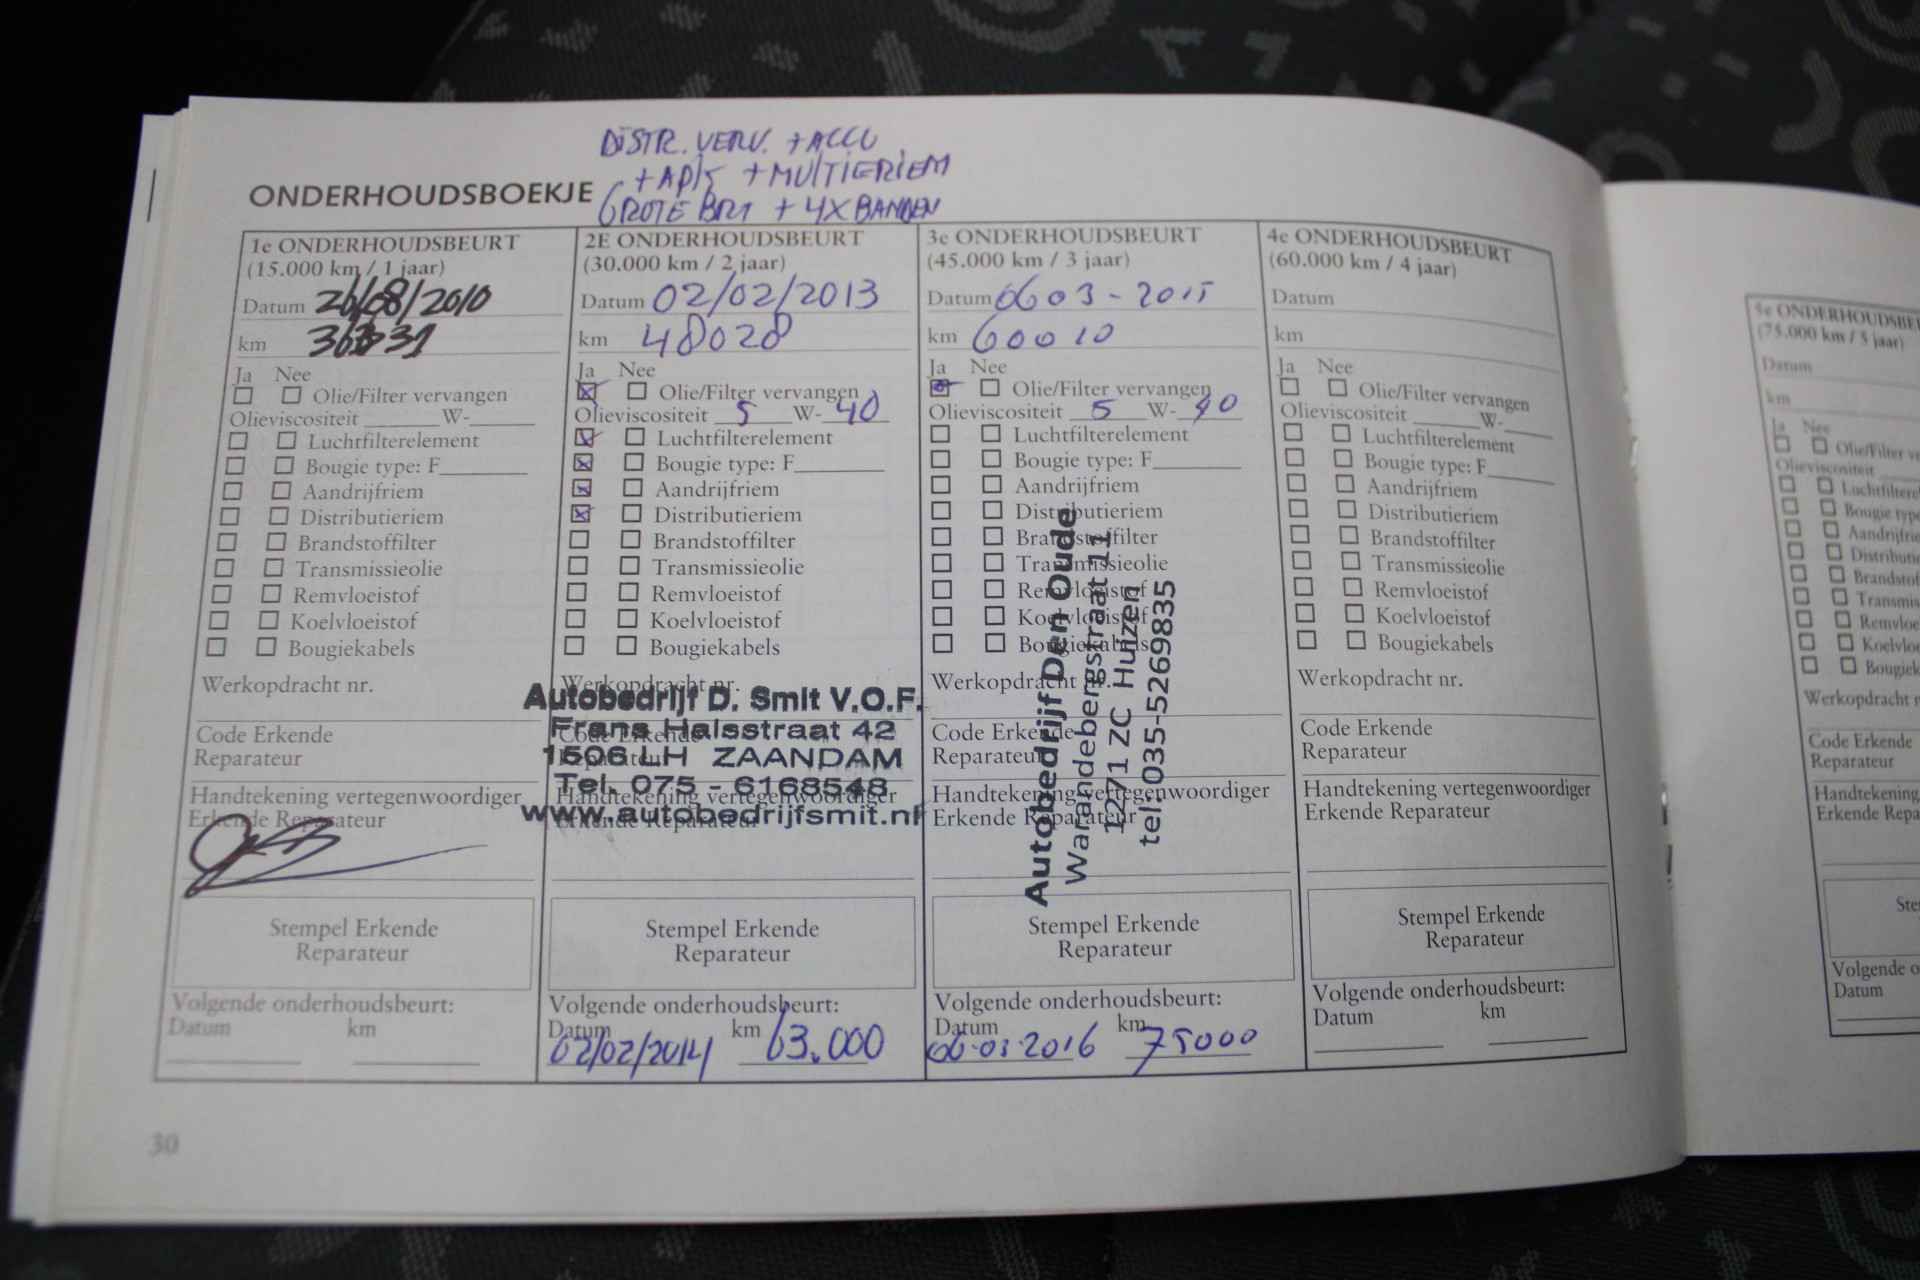 DISTR. VERV. + ACCU
+ APK + MULTIERIEM
GROTE BRT + 4X BANDEN
ONDERHOUDSBOEKJE
1e ONDERHOUDSBEURT
(15.000 km / 1 jaar)
Datum 26/08/2010
km
Ja Nee
Olie/Filter vervangen
Olieviscositeit W-
Luchtfilterelement
Bougie type: F
Aandrijfriem
Distributieriem
Brandstoffilter
Transmissieolie
Remvloeistof
Koelvloeistof
Bougiekabels
Werkopdracht nr.
Code Erkende
Reparateur
Handtekening vertegenwoordiger
Erkende Reparateur
Stempel Erkende
Reparateur
Volgende onderhoudsbeurt:
Datum km
2E ONDERHOUDSBEURT
(30.000 km / 2 jaar)
Datum 02/02/2013
km 48028
Ja Nee
Olie/Filter vervangen
Olieviscositeit 5 W- 40
Luchtfilterelement
Bougie type: F
Aandrijfriem
Distributieriem
Brandstoffilter
Transmissieolie
Remvloeistof
Koelvloeistof
Bougiekabels
Werkopdracht nr.
Autobedrijf D. Smit V.O.F.
Frans Halsstraat 42
Code Erkende
Reparateur
1506 LH ZAANDAM
Tel. 075 - 6168548
Handtekening vertegenwoordiger
www.autobedrijfsmit.nl
Erkende Reparateur
Stempel Erkende
Reparateur
Volgende onderhoudsbeurt:
Datum km
02/02/2014 63.000
3e ONDERHOUDSBEURT
(45.000 km / 3 jaar)
Datum 0603-2015
km 60010
Ja Nee
Olie/Filter vervangen
Olieviscositeit 5 W- 40
Luchtfilterelement
Bougie type: F
Aandrijfriem
Distributieriem
Brandstoffilter
Transmissieolie
Remvloeistof
Koelvloeistof
Bougiekabels
Werkopdracht nr.
Code Erkende
Reparateur
Handtekening vertegenwoordiger
Erkende Reparateur
Autobedrijf Den Oude
Warandebergstraat 11
1271 ZC Huizen
tel: 035-5269835
Stempel Erkende
Reparateur
Volgende onderhoudsbeurt:
Datum km
06-03-2016 75000
4e ONDERHOUDSBEURT
(60.000 km / 4 jaar)
Datum
km
Ja Nee
Olie/Filter vervangen
Olieviscositeit W-
Luchtfilterelement
Bougie type: F
Aandrijfriem
Distributieriem
Brandstoffilter
Transmissieolie
Remvloeistof
Koelvloeistof
Bougiekabels
Werkopdracht nr.
Code Erkende
Reparateur
Handtekening vertegenwoordiger
Erkende Reparateur
Stempel Erkende
Reparateur
Volgende onderhoudsbeurt:
Datum km
30
5e ONDERHOUDSBEU
(75.000 km / 5 jaar)
Datum
km
Ja Nee
Olie/Filter ve
Olieviscositeit
Luchtfilterel
Bougie type
Aandrijfrie
Distributi
Brandstof
Transmis
Remvloe
Koelvloe
Bougiek
Werkopdracht n
Code Erkende
Reparateur
Handtekening
Erkende Repa
Ste
Volgende o
Datum